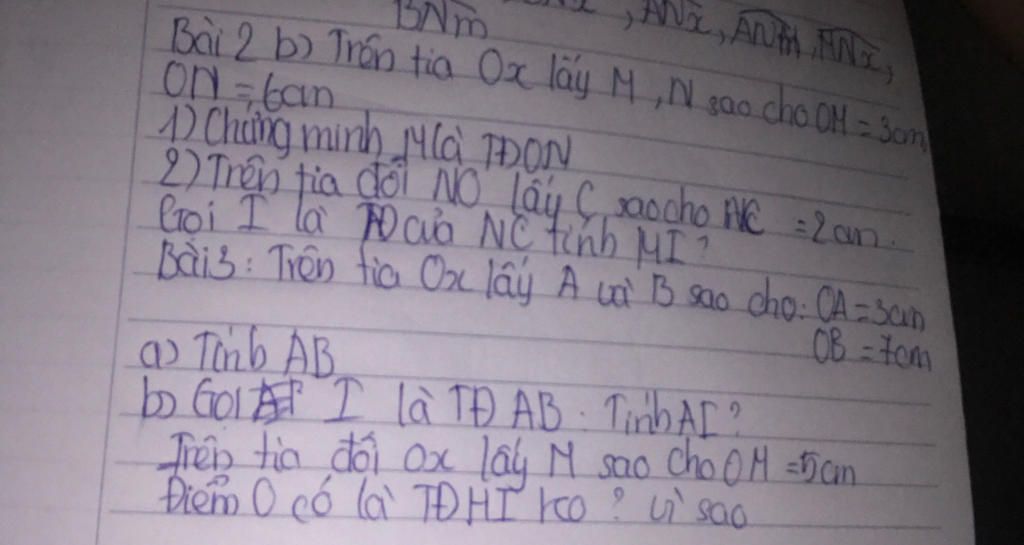 BNm
, ANx, ANm, MNx,
Bài 2 b) Trên tia Ox lấy M, N sao cho OM = 3cm,
ON = 6cm
1) Chứng minh M là TĐ ON
2) Trên tia đối NO lấy C, sao cho NC = 2cm.
Gọi I là TĐ của NC tính MI?
Bài 3: Trên tia Ox lấy A và B sao cho: OA = 3cm
OB = 7cm
a) Tính AB
b) Gọi I là TĐ AB. Tính AI?
Trên tia đối Ox lấy M sao cho OM = 5cm
Điểm O có là TĐ MI ko? Vì sao